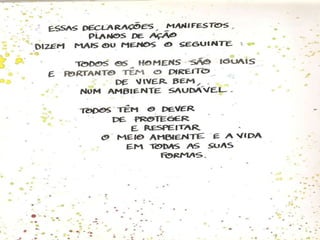 ESSAS DECLARAÇÕES, MANIFESTOS,
PLANOS DE AÇÃO
DIZEM MAIS OU MENOS O SEGUINTE
TODOS OS HOMENS SÃO IGUAIS
E PORTANTO TÊM O DIREITO
DE VIVER BEM,
NUM AMBIENTE SAUDÁVEL.
TODOS TÊM O DEVER
DE PROTEGER
E RESPEITAR
O MEIO AMBIENTE E A VIDA
EM TODAS AS SUAS
FORMAS.